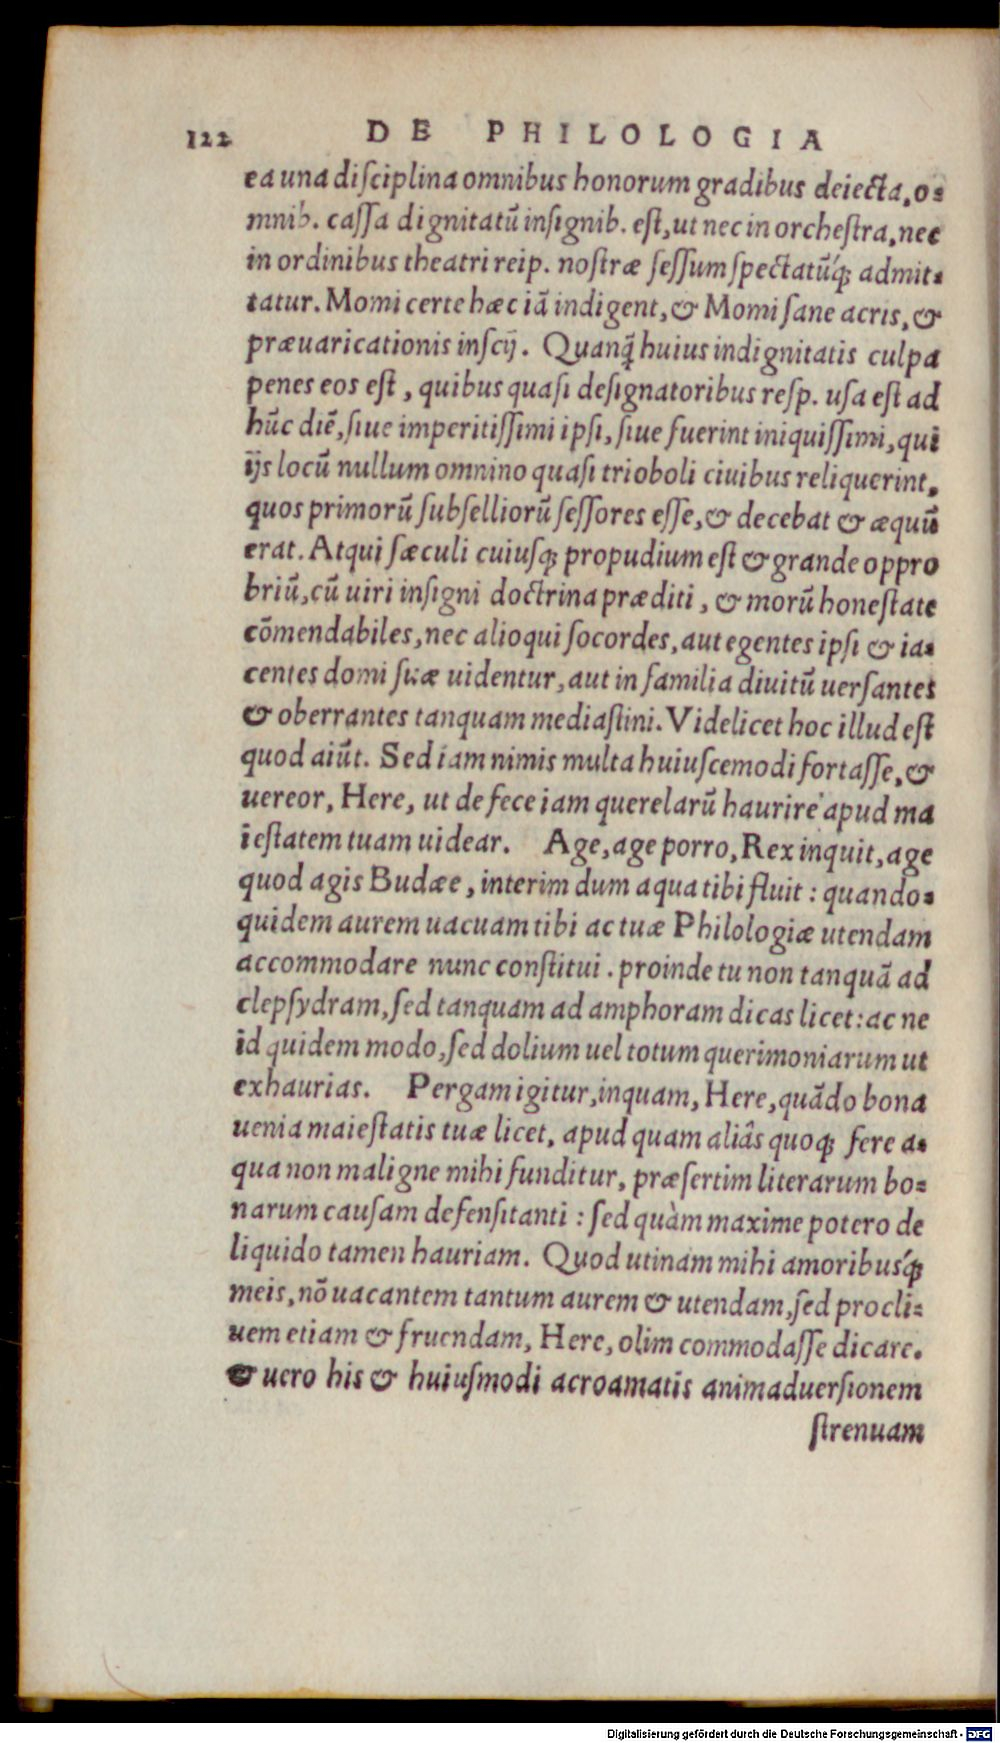 122 DE PHILOLOGIA
ea una diſciplina omnibus honorum gradibus deiecta, o-
mnib. caſſa dignitatū inſignib. eſt, ut nec in orcheſtra, nec
in ordinibus theatri reip. noſtræ ſeſſum ſpectatūq́ꝫ admit-
tatur. Momi certe hæc iā indigent, & Momi ſane acris, &
præuaricationis inſcij. Quanq̄ huius indignitatis culpa
penes eos eſt, quibus quaſi deſignatoribus reſp. uſa eſt ad
hūc diē, ſiue imperitiſſimi ipſi, ſiue fuerint iniquiſſimi, qui
ijs locū nullum omnino quaſi trioboli ciuibus reliquerint,
quos primorū ſubſelliorū ſeſſores eſſe, & decebat & æquū
erat. Atqui ſæculi cuiuſqꝫ propudium eſt & grande oppro
briū, cū uiri inſigni doctrina præditi, & morū honeſtate
cōmendabiles, nec alioqui ſocordes, aut egentes ipſi & ia-
centes domi ſuæ uidentur, aut in familia diuitū uerſantes
& oberrantes tanquam mediaſtini. Videlicet hoc illud eſt
quod aiūt. Sed iam nimis multa huiuſcemodi fortaſſe, &
uereor, Here, ut de fece iam querelarū haurire apud ma
ieſtatem tuam uidear. Age, age porro, Rex inquit, age
quod agis Budæe, interim dum aqua tibi fluit: quando-
quidem aurem uacuam tibi ac tuæ Philologiæ utendam
accommodare nunc conſtitui. proinde tu non tanquā ad
clepſydram, ſed tanquam ad amphoram dicas licet: ac ne
id quidem modo, ſed dolium uel totum querimoniarum ut
exhaurias. Pergam igitur, inquam, Here, quādo bona
uenia maieſtatis tuæ licet, apud quam aliâs quoqꝫ fere a-
qua non maligne mihi funditur, præſertim literarum bo-
narum cauſam defenſitanti: ſed quàm maxime potero de
liquido tamen hauriam. Quod utinam mihi amoribusq́ꝫ
meis, nō uacantem tantum aurem & utendam, ſed procli-
uem etiam & fruendam, Here, olim commodaſſe dicare.
& uero his & huiuſmodi acroamatis animaduerſionem
ſtrenuam
Digitalisierung gefördert durch die Deutsche Forschungsgemeinschaft - DFG